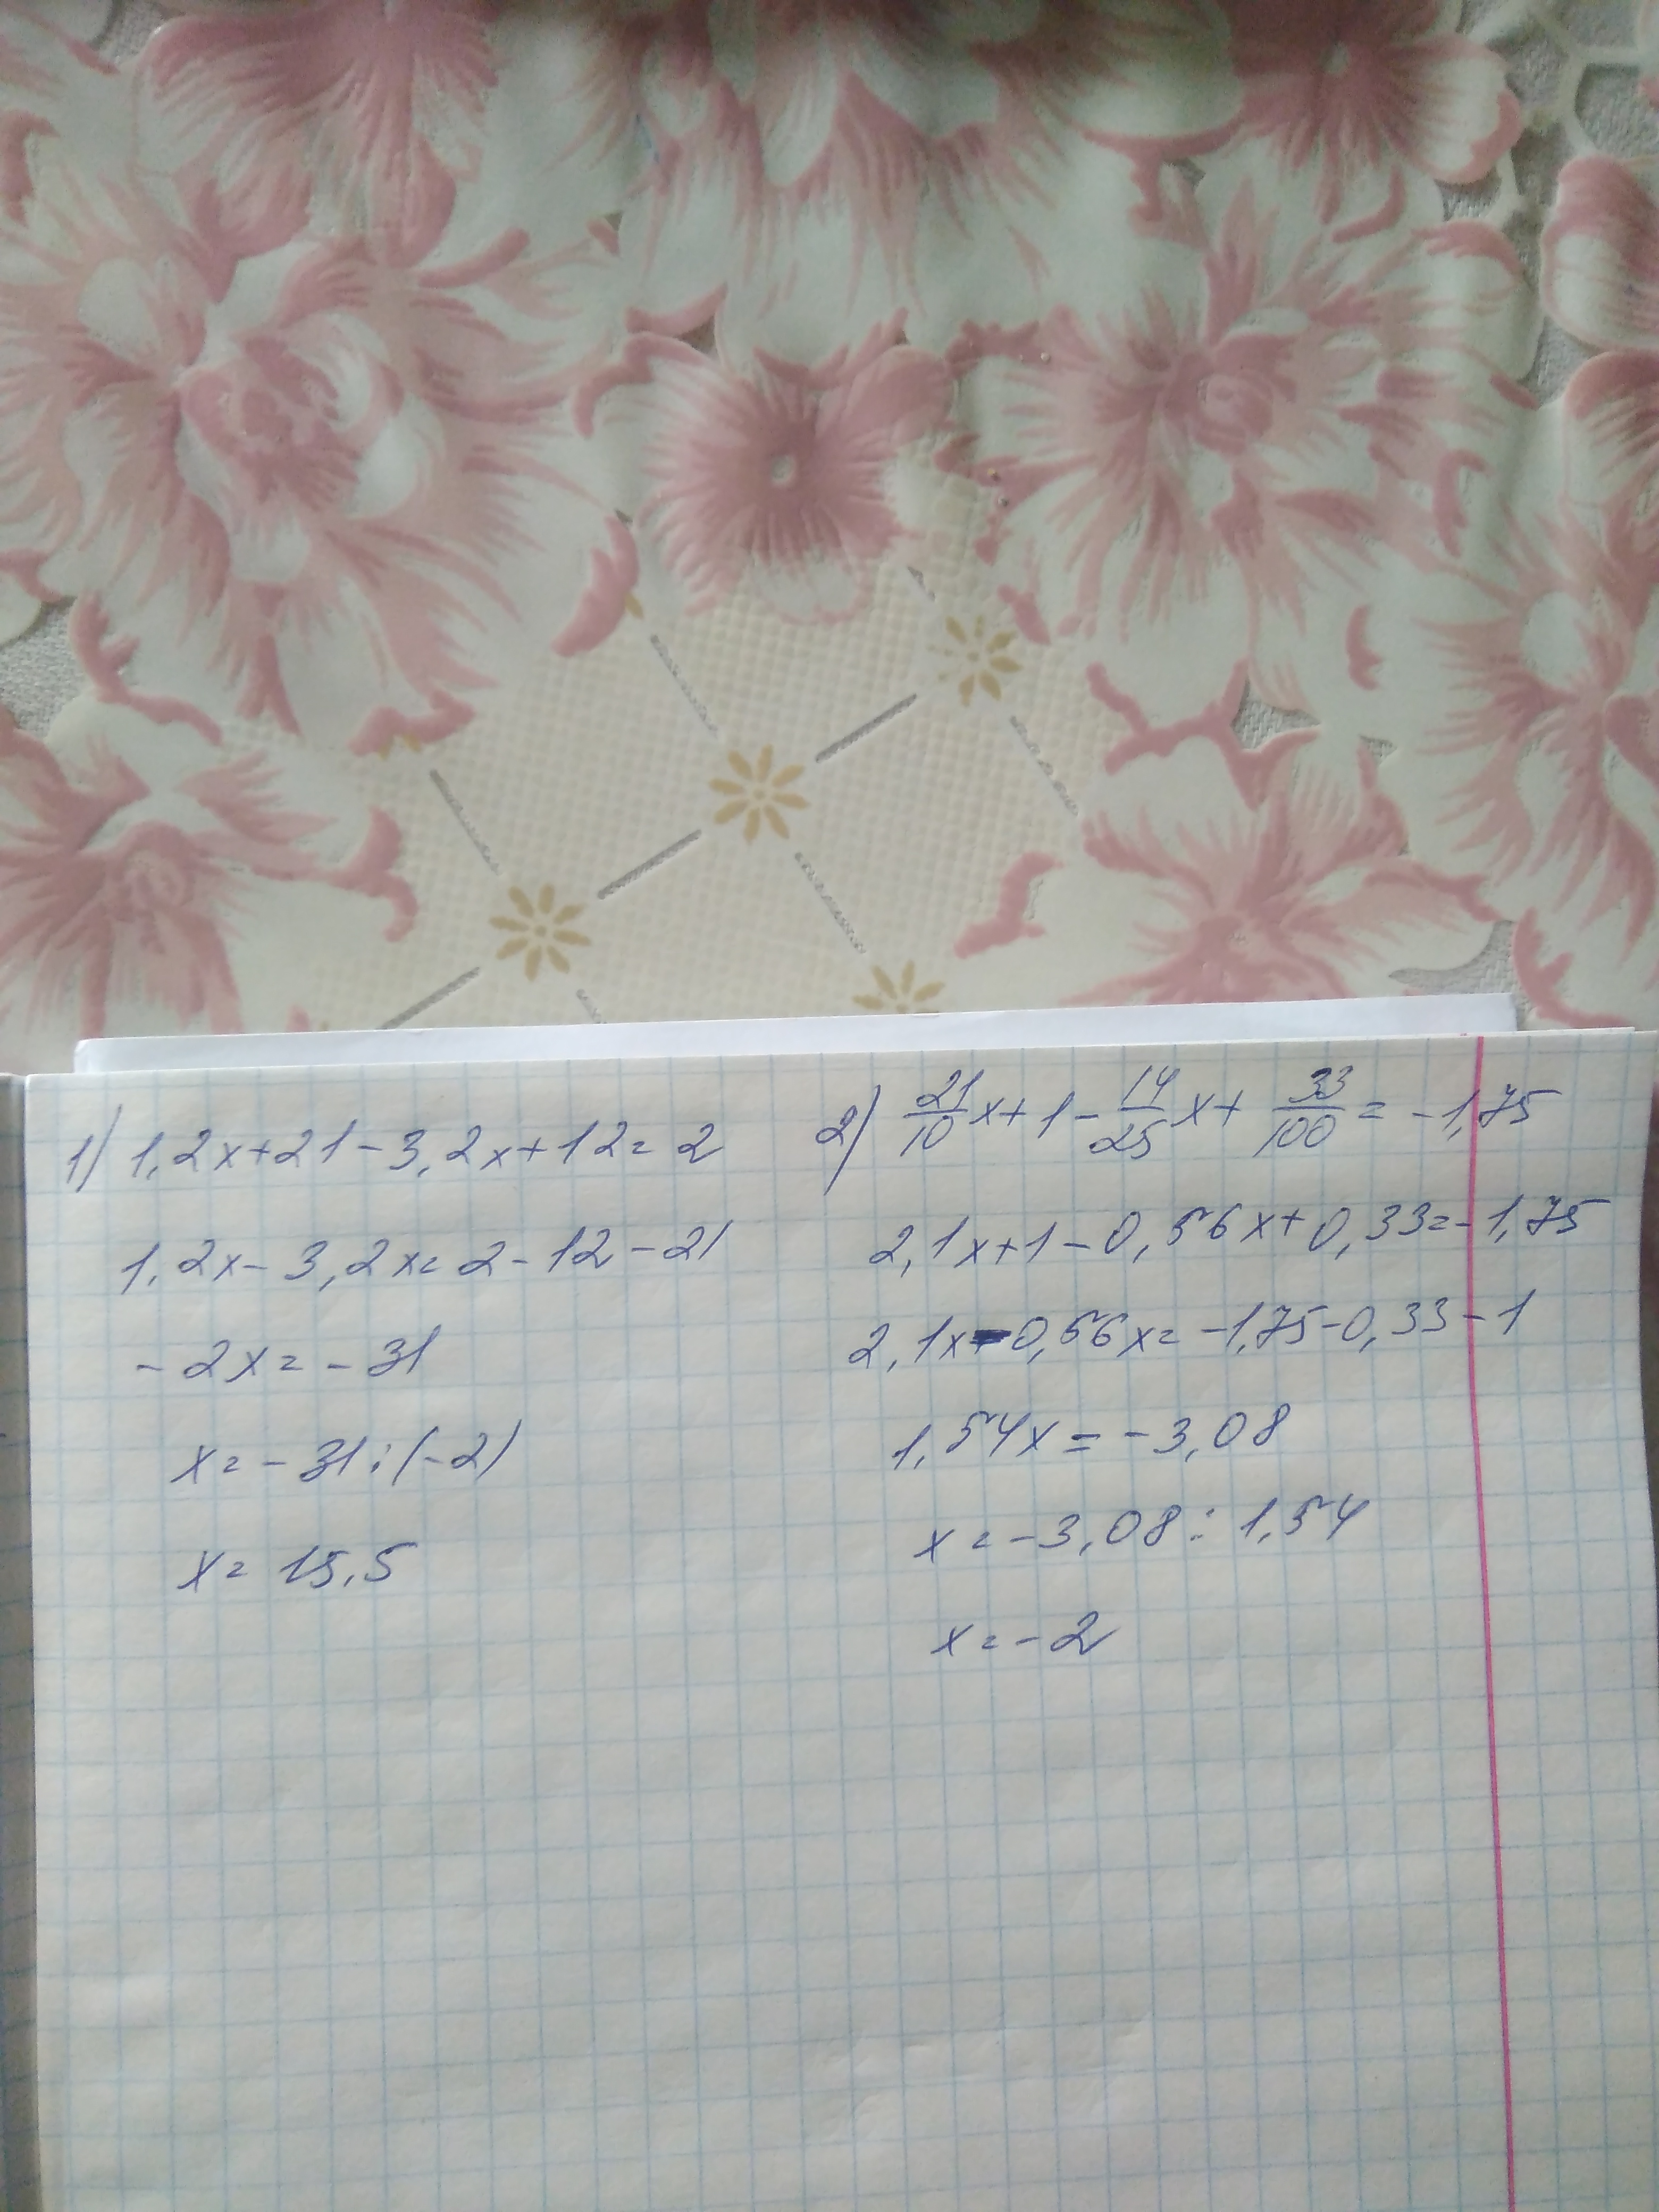 1) 1,2x+21-3,2x+12=2
1,2x-3,2x=2-12-21
-2x=-31
x=-31:(-2)
x=15,5
2) 21/10x+1-14/25x+33/100=-1,75
2,1x+1-0,56x+0,33=-1,75
2,1x-0,56x=-1,75-0,33-1
1,54x=-3,08
x=-3,08:1,54
x=-2